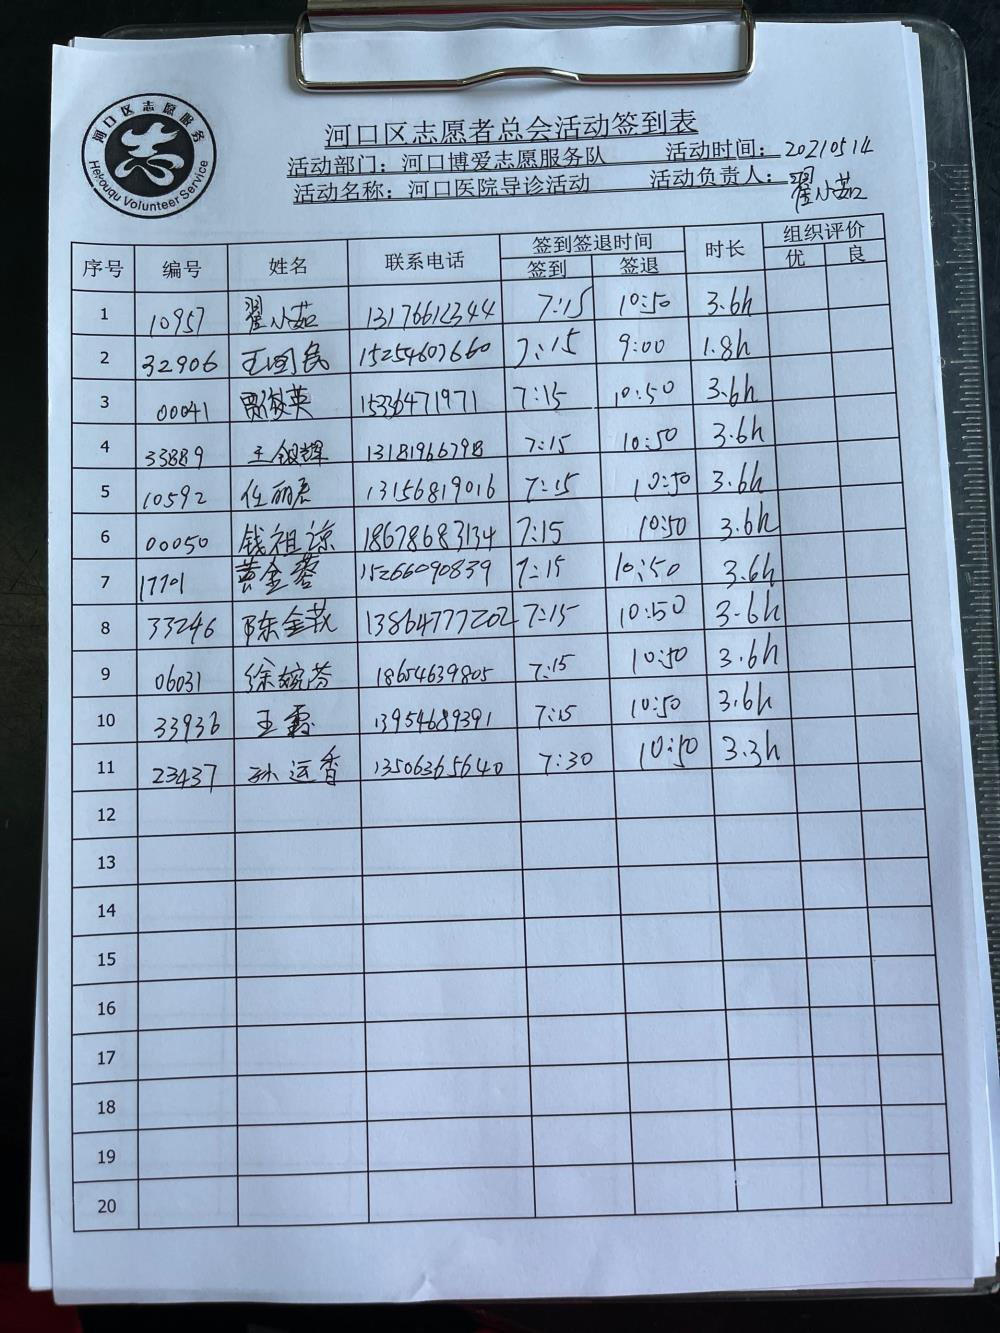 河口区志愿服务
Hekouqu Volunteer Service
河口区志愿者总会活动签到表
活动部门：河口博爱志愿服务队 活动时间：20210514
活动名称：河口医院导诊活动 活动负责人：翟小茹
序号 编号 姓名 联系电话 签到签退时间 时长 组织评价
签到 签退 优 良
1 10957 翟小茹 13176612344 7:15 10:50 3.6h
2 32906 王国民 15254607660 7:15 9:00 1.8h
3 00041 英 15336471971 7:15 10:50 3.6h
4 33889 王银辉 7:15 10:50 3.6h
5 10592 任丽君 13156819016 7:15 10:50 3.6h
6 00050 钱祖谅 18678683134 7:15 10:50 3.6h
7 17701 黄金蓉 15266090839 7:15 10:50 3.6h
8 33246 陈金花 13864777202 7:15 10:50 3.6h
9 06031 徐婉芬 18654639805 7:15 10:50 3.6h
10 33936 王霞 13954689391 7:15 10:50 3.6h
11 23437 孙运香 13506365640 7:30 10:50 3.3h
12
13
14
15
16
17
18
19
20